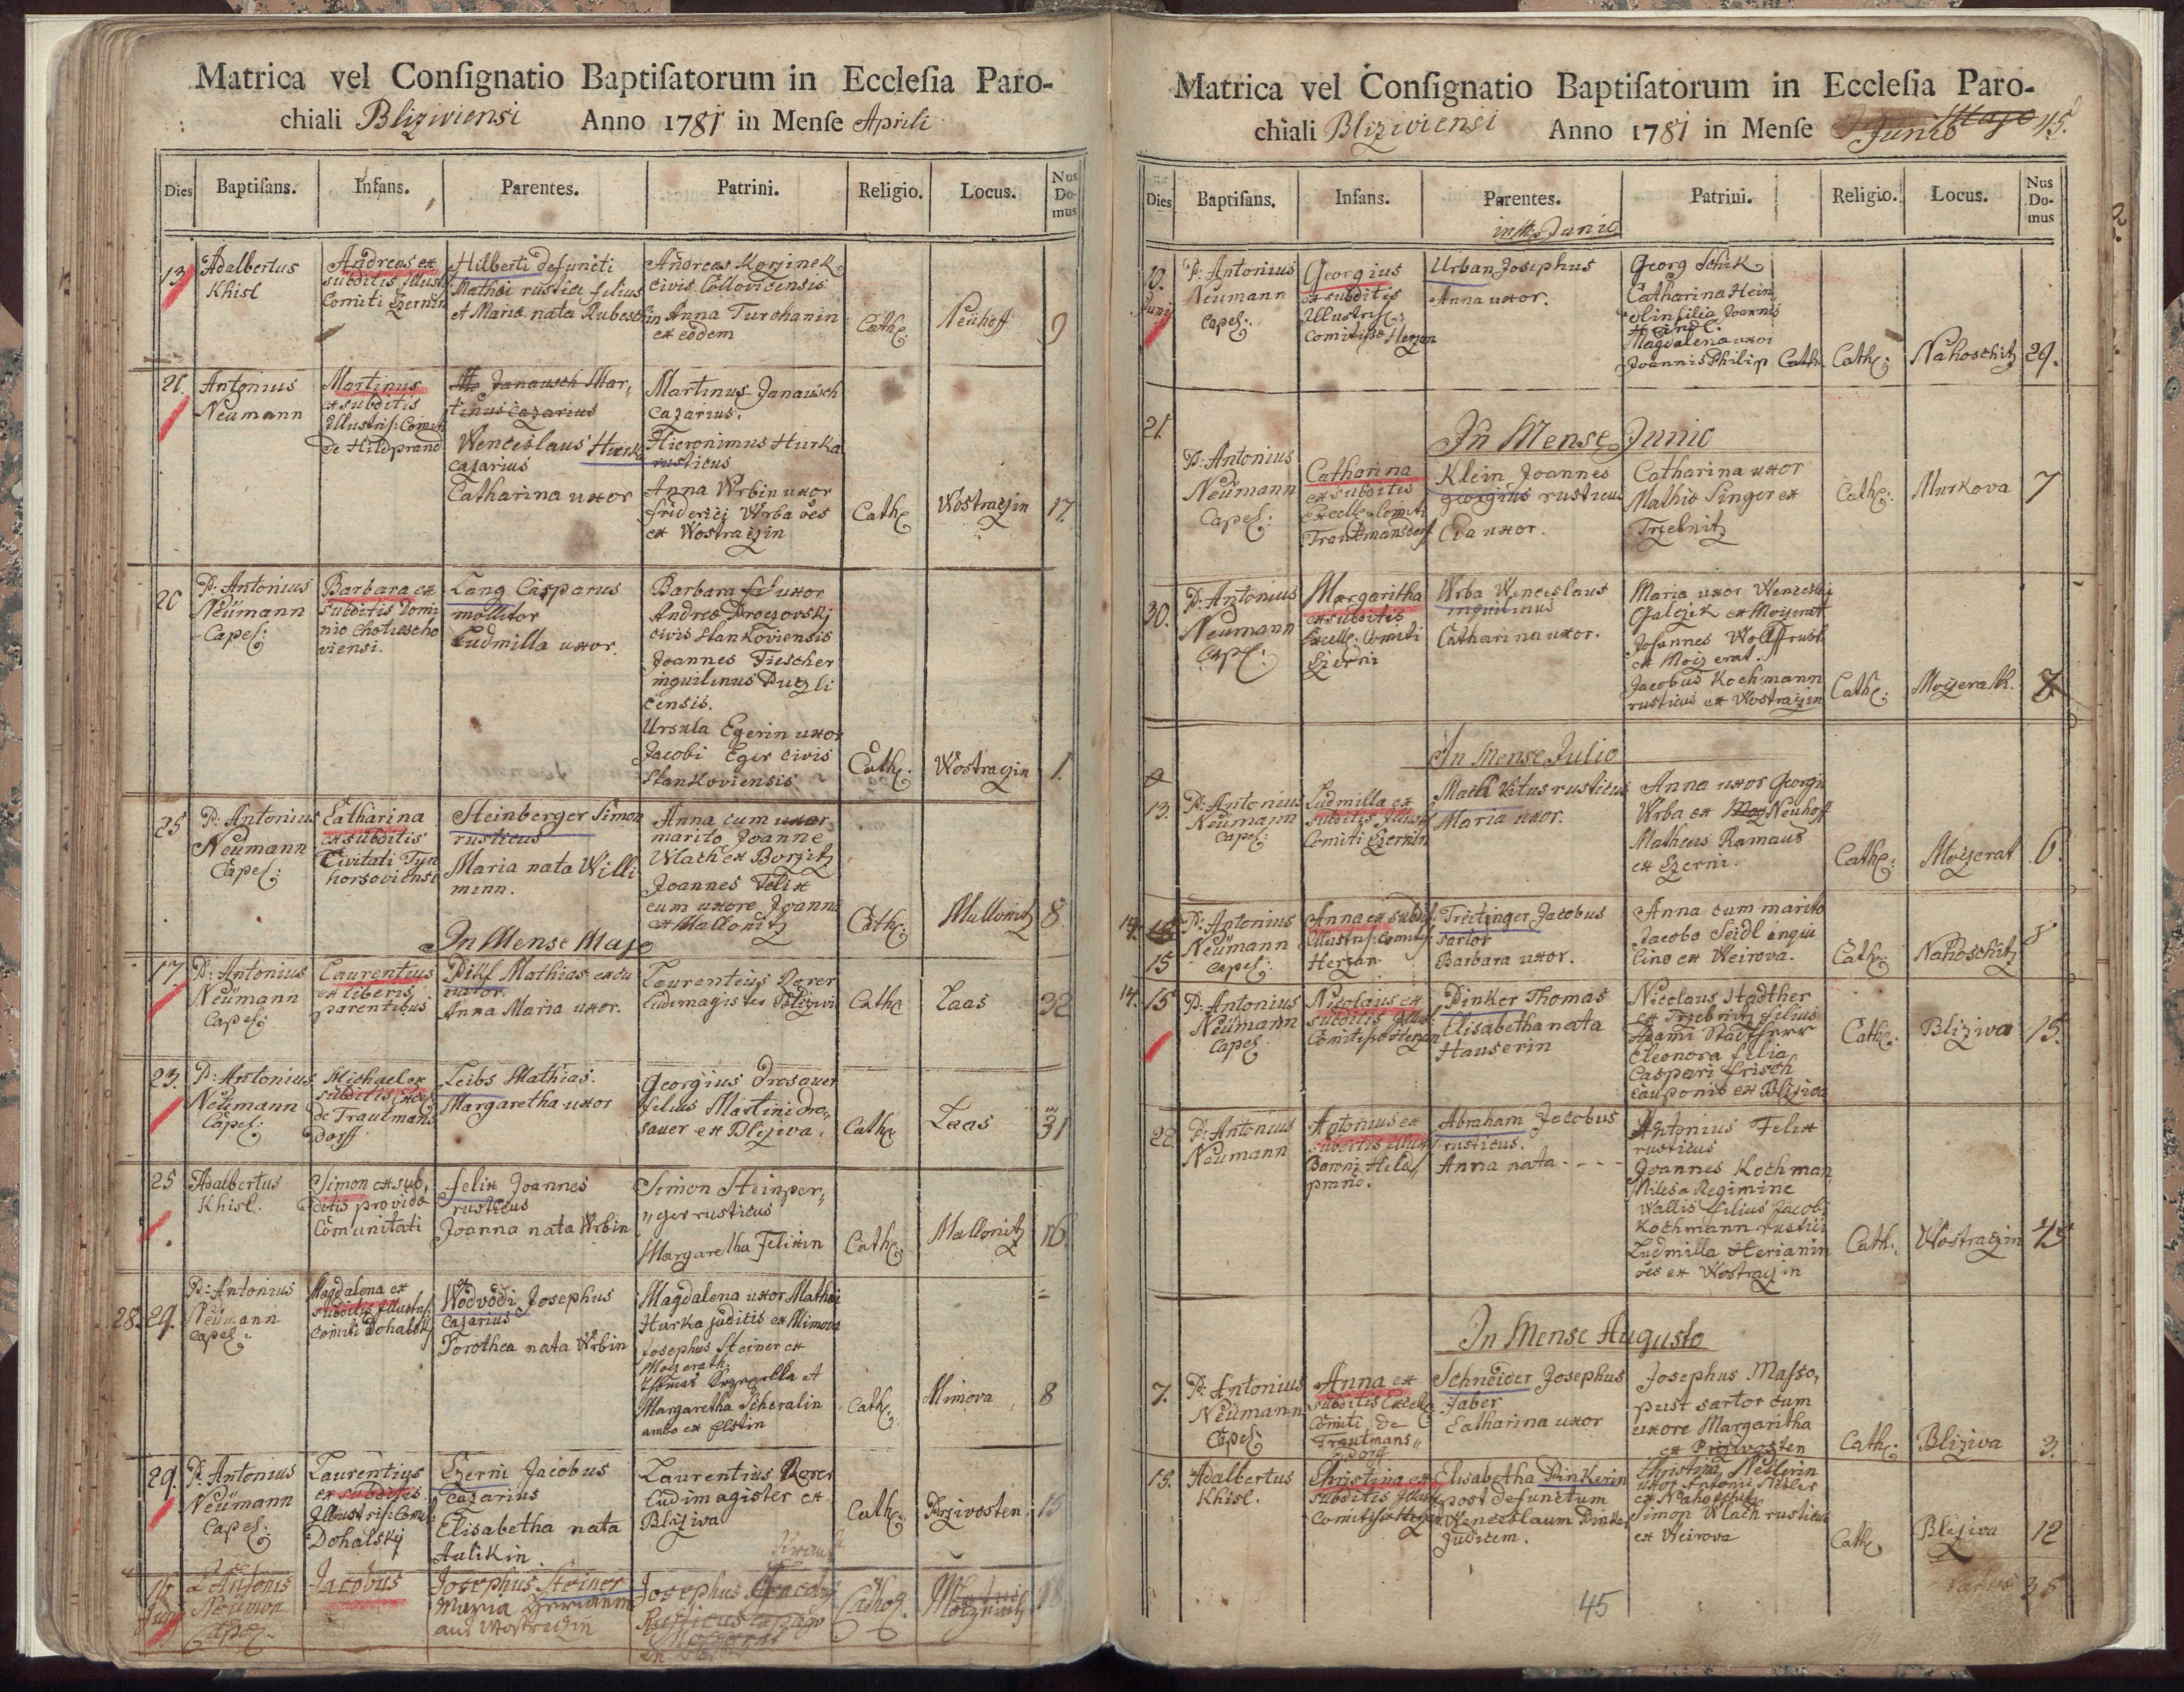 Matrica vel Conſignatio Baptiſatorum in Eccleſia Paro-
chiali Bliziviensi Anno 1781 in Menſe Aprili
Dies Baptiſans. Infans. Parentes. Patrini. Religio. Locus. Nus Do- mus
13
Adalbertus
Khisl
Andreas ex
subditis Illust
Comiti Czernin
Hilberti defuncti
Mathæi rustici filius
et Maria nata Rubeschin
Andreas Korzinek
civis
Anna Turchanin
ex eodem
Cath:
Neühoff
9
21.
Antonius
Neumann
Martinus
ex subditis
Illustris: Comit
de Hildprand
Janausch Mar,,
tinus cazarius
Wenceslaus Hurka
cazarius
Catharina uxor
Martinus Janausch
cazarius.
Hieronimus Hurka
rusticus
Anna Wrbin uxor
friderici Wrba oes
ex Wostraczin
Cath:
Wostraczin
17.
20
P: Antonius
Neümann
Capel:
Barbara ex
subditis Domi
nio Chotiescho
viensi.
Lang Casparus
mollitor
Ludmilla uxor.
Barbara uxor
civis Stankoviensis
Joannes Fiescher
inquilinus
censis.
Ursula Egerin uxor
Jacobi Eger civis
Stankoviensis
Cath:
Wostraczin
1.
25
P: Antonius
Neümann
Capel:
Catharina
ex subditis
Civitati Tyn
horsoviensi
Steinberger Simon
rusticus
Maria nata Willi
minn.
Anna cum uxor
marito Joanne
Wlach ex Borzitz
Joannes Felix
cum uxore Joanna
ex Mallonitz
Cath:
Mallonitz
8.
In Mense Majo
17.
P: Antonius
Neümann
Capel:
Laurentius
ex liberis
parentibus
Mathias
Anna Maria uxor.
Laurentius Rorer
Ludimagister
Cath:
Laas
32
23.
P: Antonius
Neümann
Capel:
Michael ex
subditis
de Trautmans
dorff
Leibs Mathias.
Margaretha uxor
Georgius Drosauer
filius Martini Dro,,
sauer ex Bliziva.
Cath:
Laas
31
25
Adalbertus
Khisl.
Simon ex sub,
ditis provido
Comunitati
felix Joannes
rusticus
Joanna nata Wrbin
Simon Steinper,,
,,ger rusticus
Margaretha Felixin
Cath:
Mallonitz
16.
28. 29.
P: Antonius
Neümann
Capel:
Magdalena ex
subditis Illustris:
comiti Dohalsky
Wodvodi Josephus
cazarius
Dorothea nata Wrbin
Magdalena uxor Mathæi
Hurka judicis ex Mimova
Josephus Steiner ex
Moizerath.
Margaretha Scheralin
ambo ex
Cath:
Mimova
8
29.
P: Antonius
Neümann
Capel:
Laurentius
ex subditis
Illustris: Comi
Dohalsky
Czerni Jacobus
cazarius
Elisabetha nata
Aulikin
Laurentius Rorer
Ludimagister ex
Bliziva
Cath:
Przivosten
15
Antonis
Neümon
Capel
Jacobus
Josephus Steiner
Maria
aus Wostraczin
Josephus
Rusticus
Cathol.
18
Matrica vel Conſignatio Baptiſatorum in Eccleſia Paro-
chiali Bliziviensi Anno 1781 in Menſe Majo Junio 45.
Dies Baptiſans. Infans. Parentes. Patrini. Religio. Locus. Nus Do- mus
Junio
10.
Juny
P: Antonius
Neumann
Capel:
Georgius
ex subditis
Illustriss:
Comitissæ Herzan
Urban Josephus
Anna uxor.
Georg Schik
Catharina Hein,,
olin filia Joannis
Magdalena uxor
Joannis Philip Cath
Cath:
Nahoschitz
29.
In Mense Junio
21.
P: Antonius
Neümann
Capel:
Catharina
ex subditis
Excell: Comiti
Trautmansdorf
Klein Joannes
georgius rusticus
Eva uxor.
Catharina uxor
Mathiæ Singer ex
Trzebnitz
Cath:
Murkova
7
30.
P: Antonius
Neümann
Capel:
Margaritha
ex subditis
Excelle: Comiti
Czerni
Wrba Wenceslaus
inquilinus
Catharina uxor.
Maria uxor Wenzeslai
ex Moizerath
Johannes Wolff rust:
ex Moizerat.
Jacobus Kochmann
rusticus ex Wostraczin
Cath:
Moizerath.
7
In Mense Julio
13.
P: Antonius
Neümann
Capel:
Ludmilla ex
subditis Illust
Comiti Czernin
Mach Vitus rusticus
Maria uxor.
Anna uxor Georgii
Wrba ex Neuhoff
Matheus Ramaus
ex Czerni.
Cath:
Moizerat
6.
14.
15
P: Antonius
Neümann
Capel:
Anna ex subdit:
Illustris: Comitis:
Herzan
Treitinger Jacobus
sartor
Barbara uxor.
Anna cum marito
Jacobo Seidl inqui
lino ex Weirova.
Cath:
Nahoschitz
8
14. 15
P: Antonius
Neümann
Capel:
Nicolaus ex
subditis Illus:
Comitissæ Herzan
Pinker Thomas
Elisabetha nata
Hauserin
Nicolaus Stadther
ex Trzebnitz filius
Adami Stadtherr
Eleonora filia
Caspari frisch
Cauponis ex Bliziva
Cath:
Bliziva
15.
22.
P: Antonius
Neümann
Antonius ex
subditis Illustr
Baroni Hild,,
prand.
Abraham Jacobus
rusticus.
Anna nata - - - -
Antonius Felix
rusticus
Joannes Kochman
Miles a Regimine
Wallis filius Jacobi
Kochmann rustici
Ludmilla Herianin
oes ex Wostraczin
Cath:
Wostraczin
In Mense Augusto
7.
P: Antonius
Neümann
Capel:
Anna ex
subditis Excelle
Comiti de
Trautmans,,
dorff
Schneider Josephus
faber
Catharina uxor
Josephus Masso,
pust sartor cum
uxore Margaritha
ex Przivosten
Cath:
Bliziva
3.
15.
Adalbertus
Khisl.
Christina ex
subditis Illust
Comitissæ Herzan
Elisabetha Pinkerin
post defunctum
Wenceslaum Pinker
Judicem.
Christina Neslerin
uxor Antonii Nesler
ex Nahoschitz
Simon Wlach rusticus
ex Weirova
Cath:
Bliziva
12
45